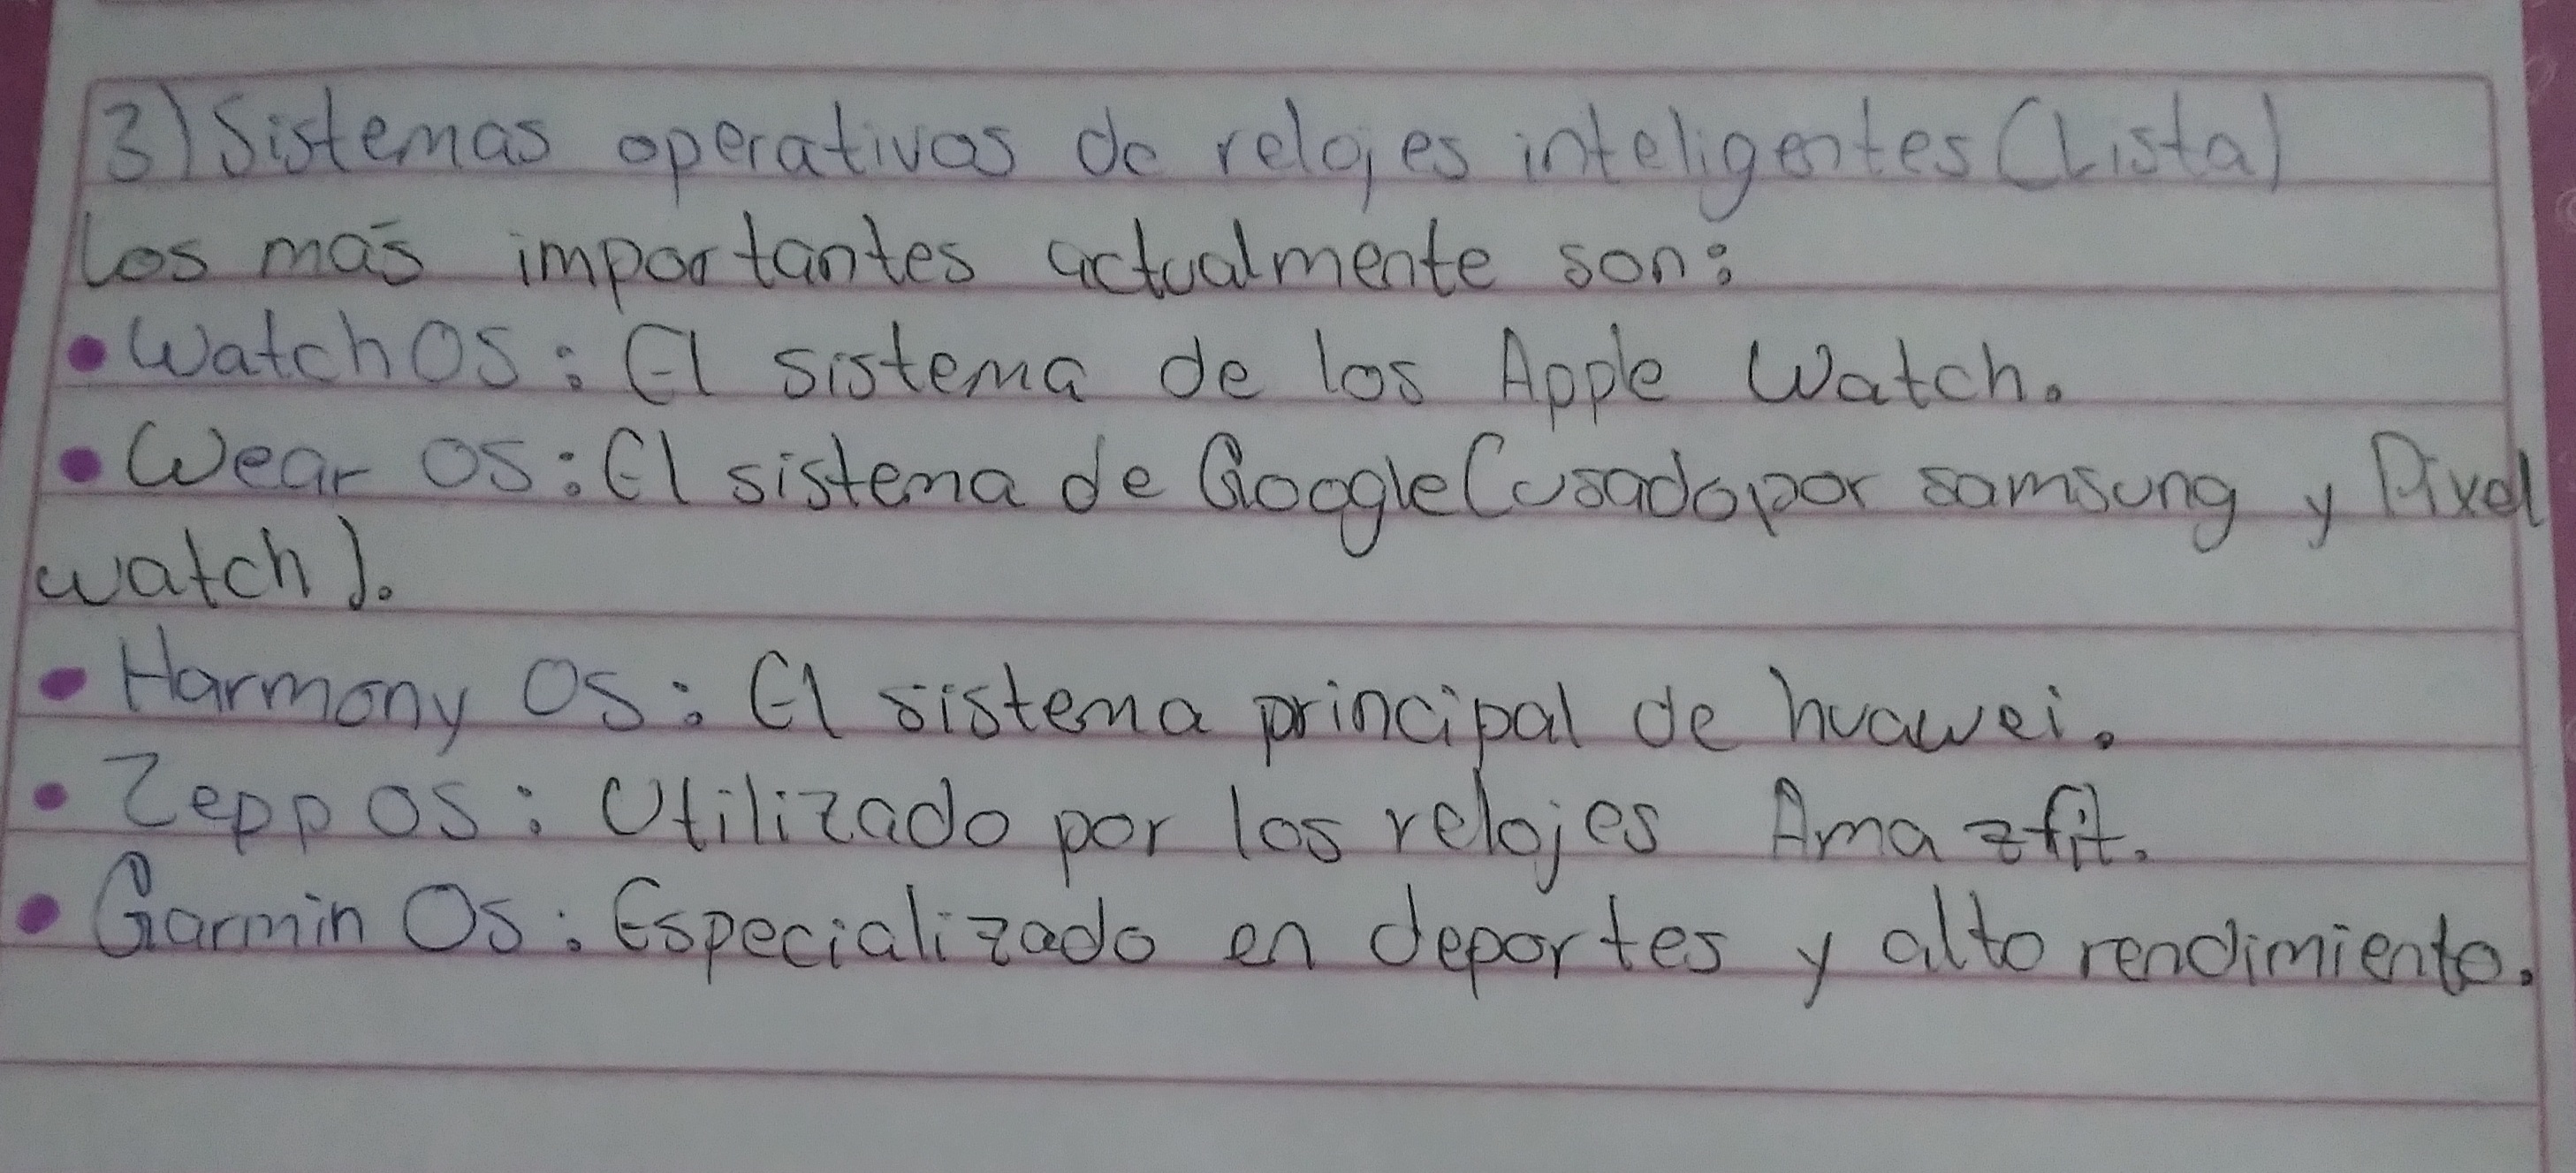 3) Sistemas operativos de relojes inteligentes (Lista)
Los más importantes actualmente son:
• Watch OS: El sistema de los Apple Watch.
• Wear OS: El sistema de Google (usado por samsung y Pixel
watch).
• Harmony Os: El sistema principal de huawei.
• Zepp OS: Utilizado por los relojes Amazfit.
• Garmin Os: Especializado en deportes y alto rendimiento.